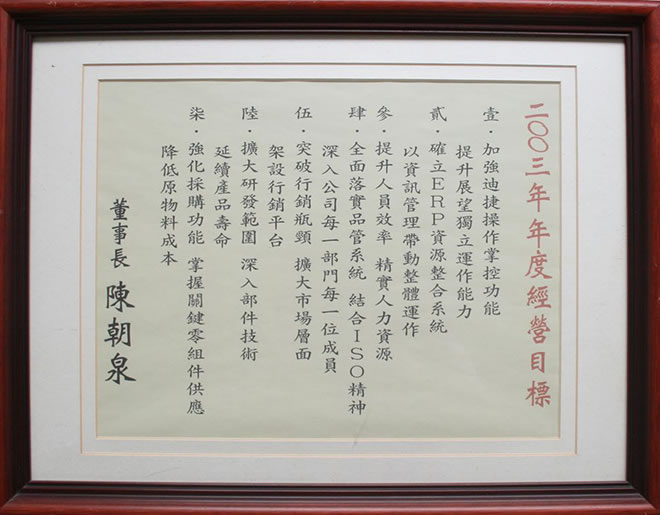 二〇〇三年年度經營目標
壹．加強迪捷操作掌控功能
提升展望獨立運作能力
貳．確立ERP資源整合系統
以資訊管理帶動整體運作
參．提升人員效率 精實人力資源
肆．全面落實品管系統 結合ISO精神
深入公司每一部門每一位成員
伍．突破行銷瓶頸 擴大市場層面
架設行銷平台
陸．擴大研發範圍 深入部件技術
延續產品壽命
柒．強化採購功能 掌握關鍵零組件供應
降低原物料成本
董事長 陳朝泉